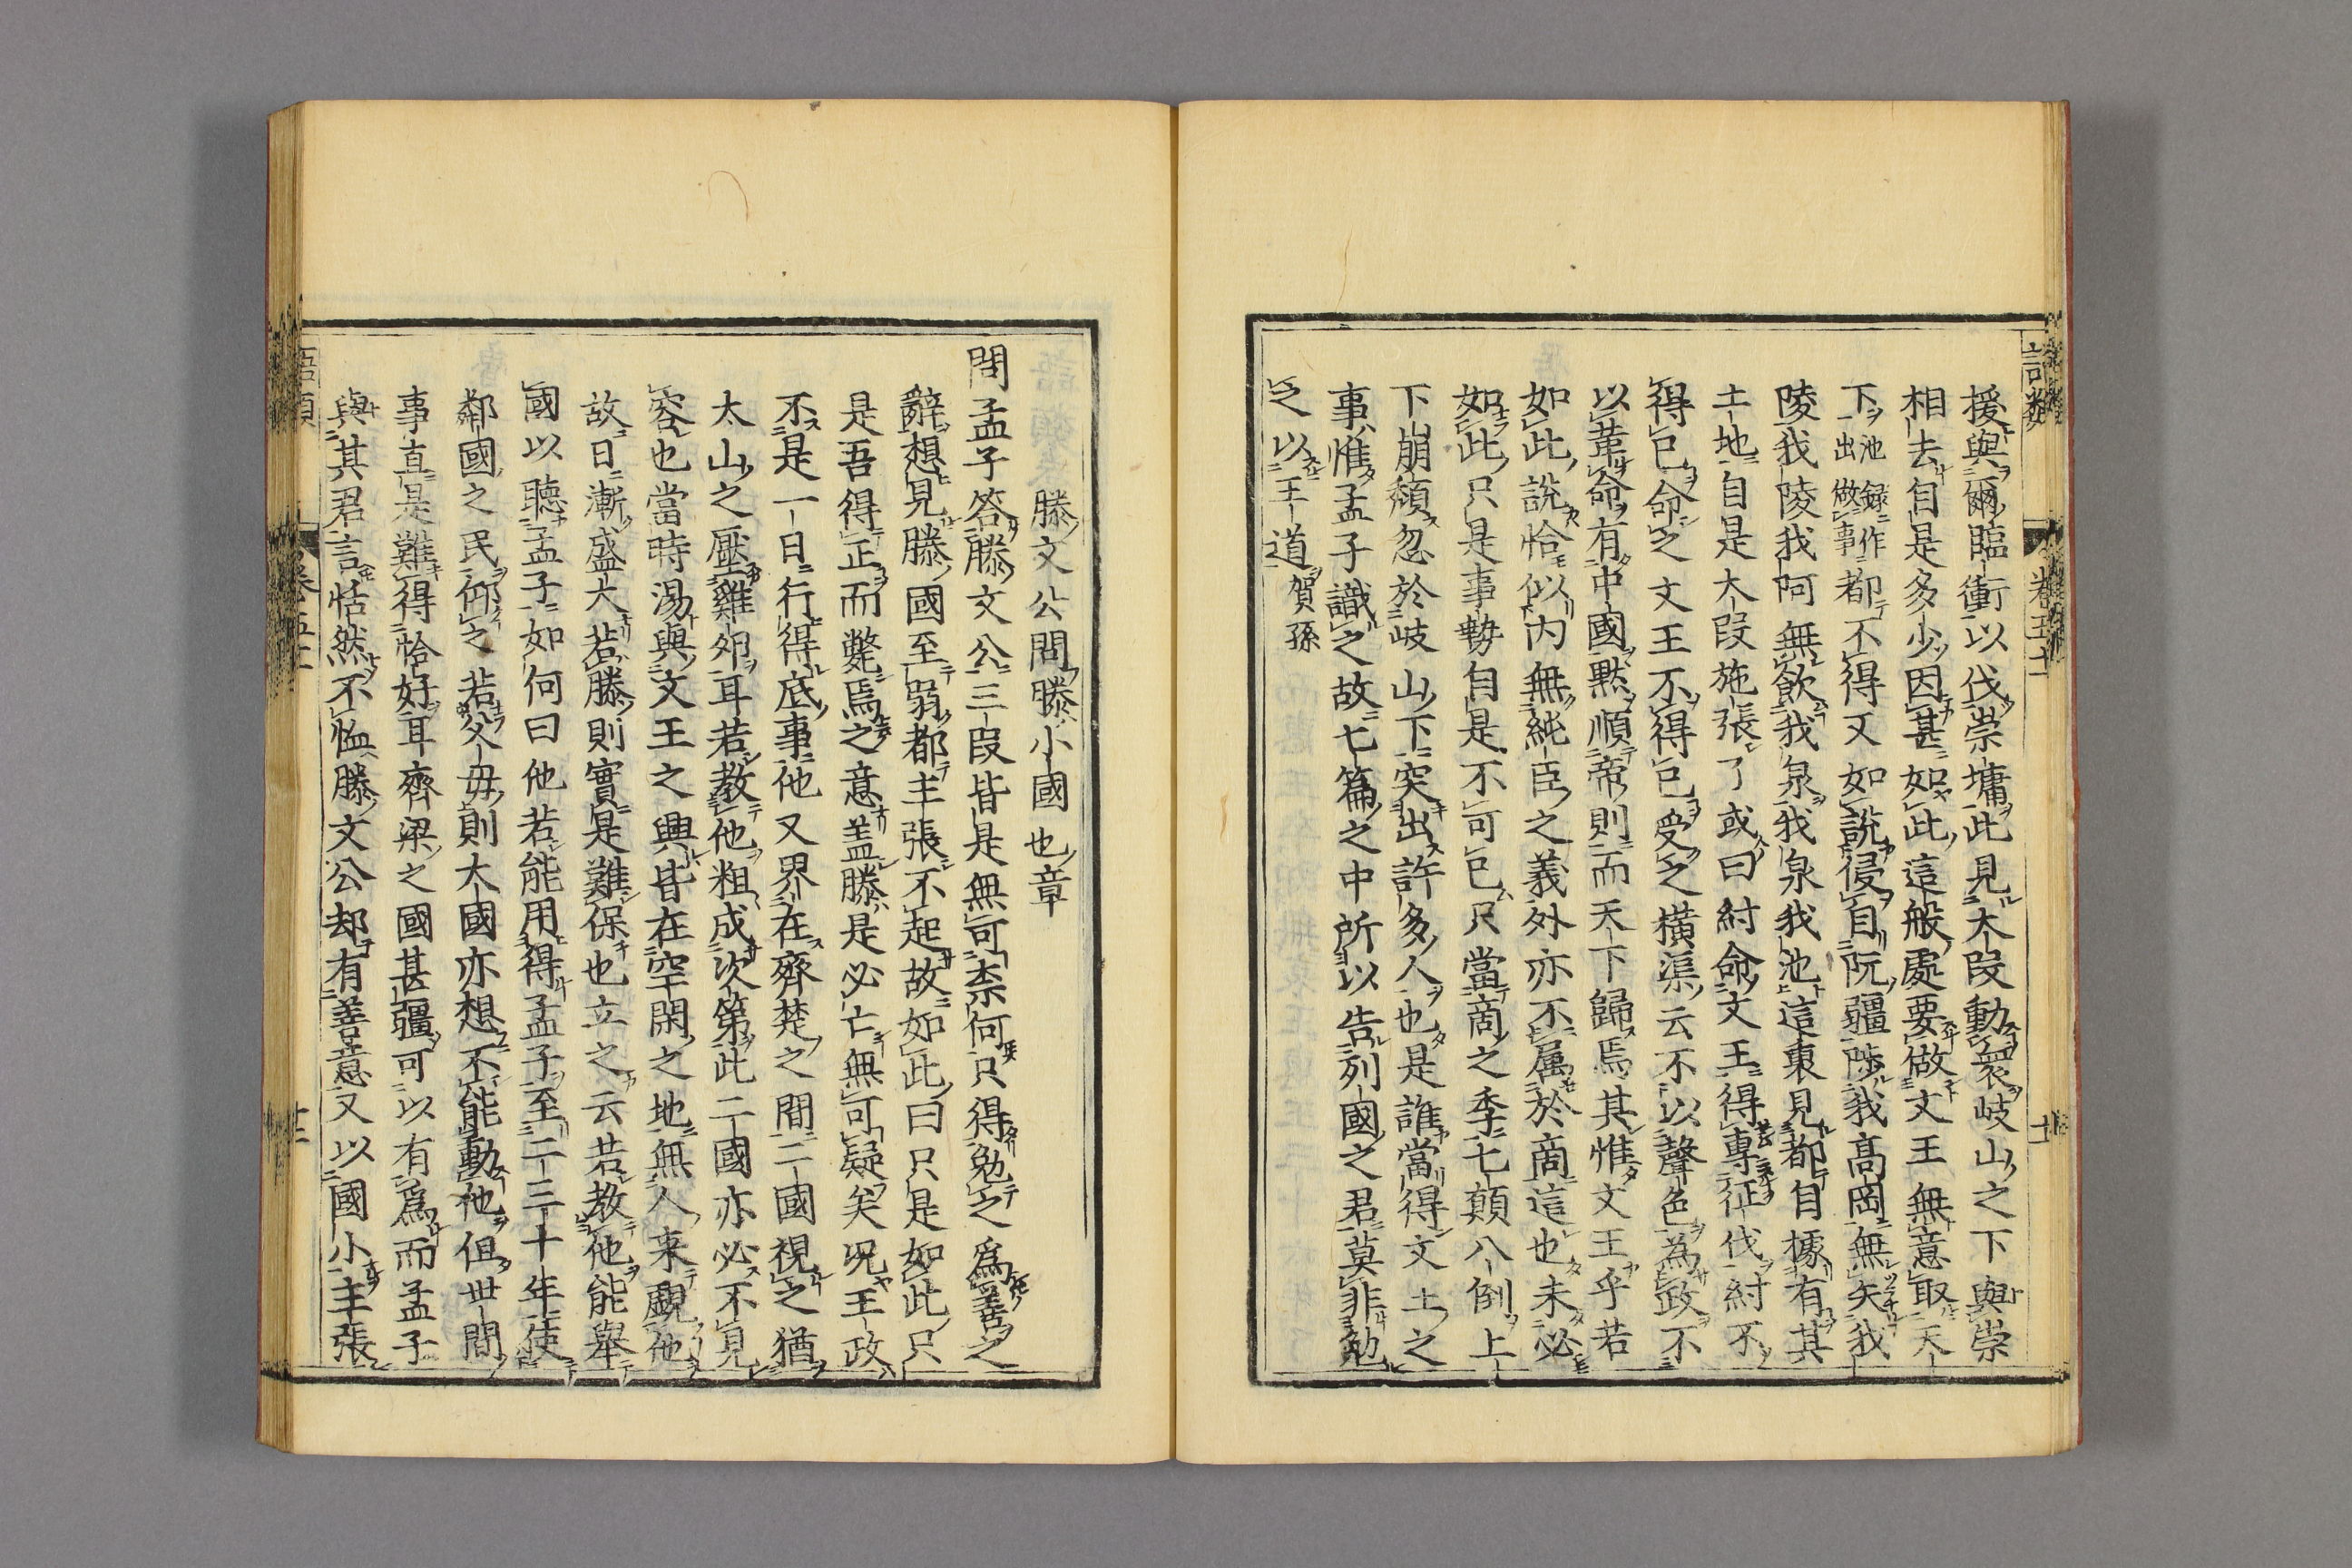 援與爾臨衝以伐崇墉此見大段動衆岐山之下與崇
相去自是多少因甚如此這般處要做文王無意取天
下池録作出做事都不得又如說侵自阮疆陟我高岡無矢我
陵我陵我阿無飲我泉我泉我池這裏見都自據有其
土地自是大段施張了或曰紂命文王得專征伐紂不
得已命之文王不得已受之橫渠云不以聲色為政不
以革命有中國黙順帝則而天下歸焉其惟文王乎若
如此說恰似内無純臣之義外亦不属於商這也未必
如此只是事勢自是不可已只當商之季七顛八倒上
下崩頹忽於岐山下突出許多人也是誰當得文王之
事惟孟子識之故七篇之中所以告列國之君莫非勉
之以王道賀孫
滕文公問滕小國也章
問孟子答滕文公三段皆是無可柰何只得勉之爲善之
辭想見滕國至弱都主張不起故如此曰只是如此只
是吾得正而斃焉之意盖滕是必亡無可疑矣况王政
不是一日行得底事他又界在齊楚之間二國視之猶
太山之壓雞夘耳若教他粗成次第此二國亦必不見
容也當時湯與文王之興皆在空閑之地無人来覷他
故日漸盛大若滕則實是難保也立之云若教他能舉
國以聽孟子如何曰他若能用得孟子至二三十年使
鄰國之民仰之若父母則大國亦想不能動他但世間
事直是難得恰好耳齊梁之國甚疆可以有爲而孟子
與其君言恬然不恤滕文公却有善意又以國小主張
語類
卷五十一